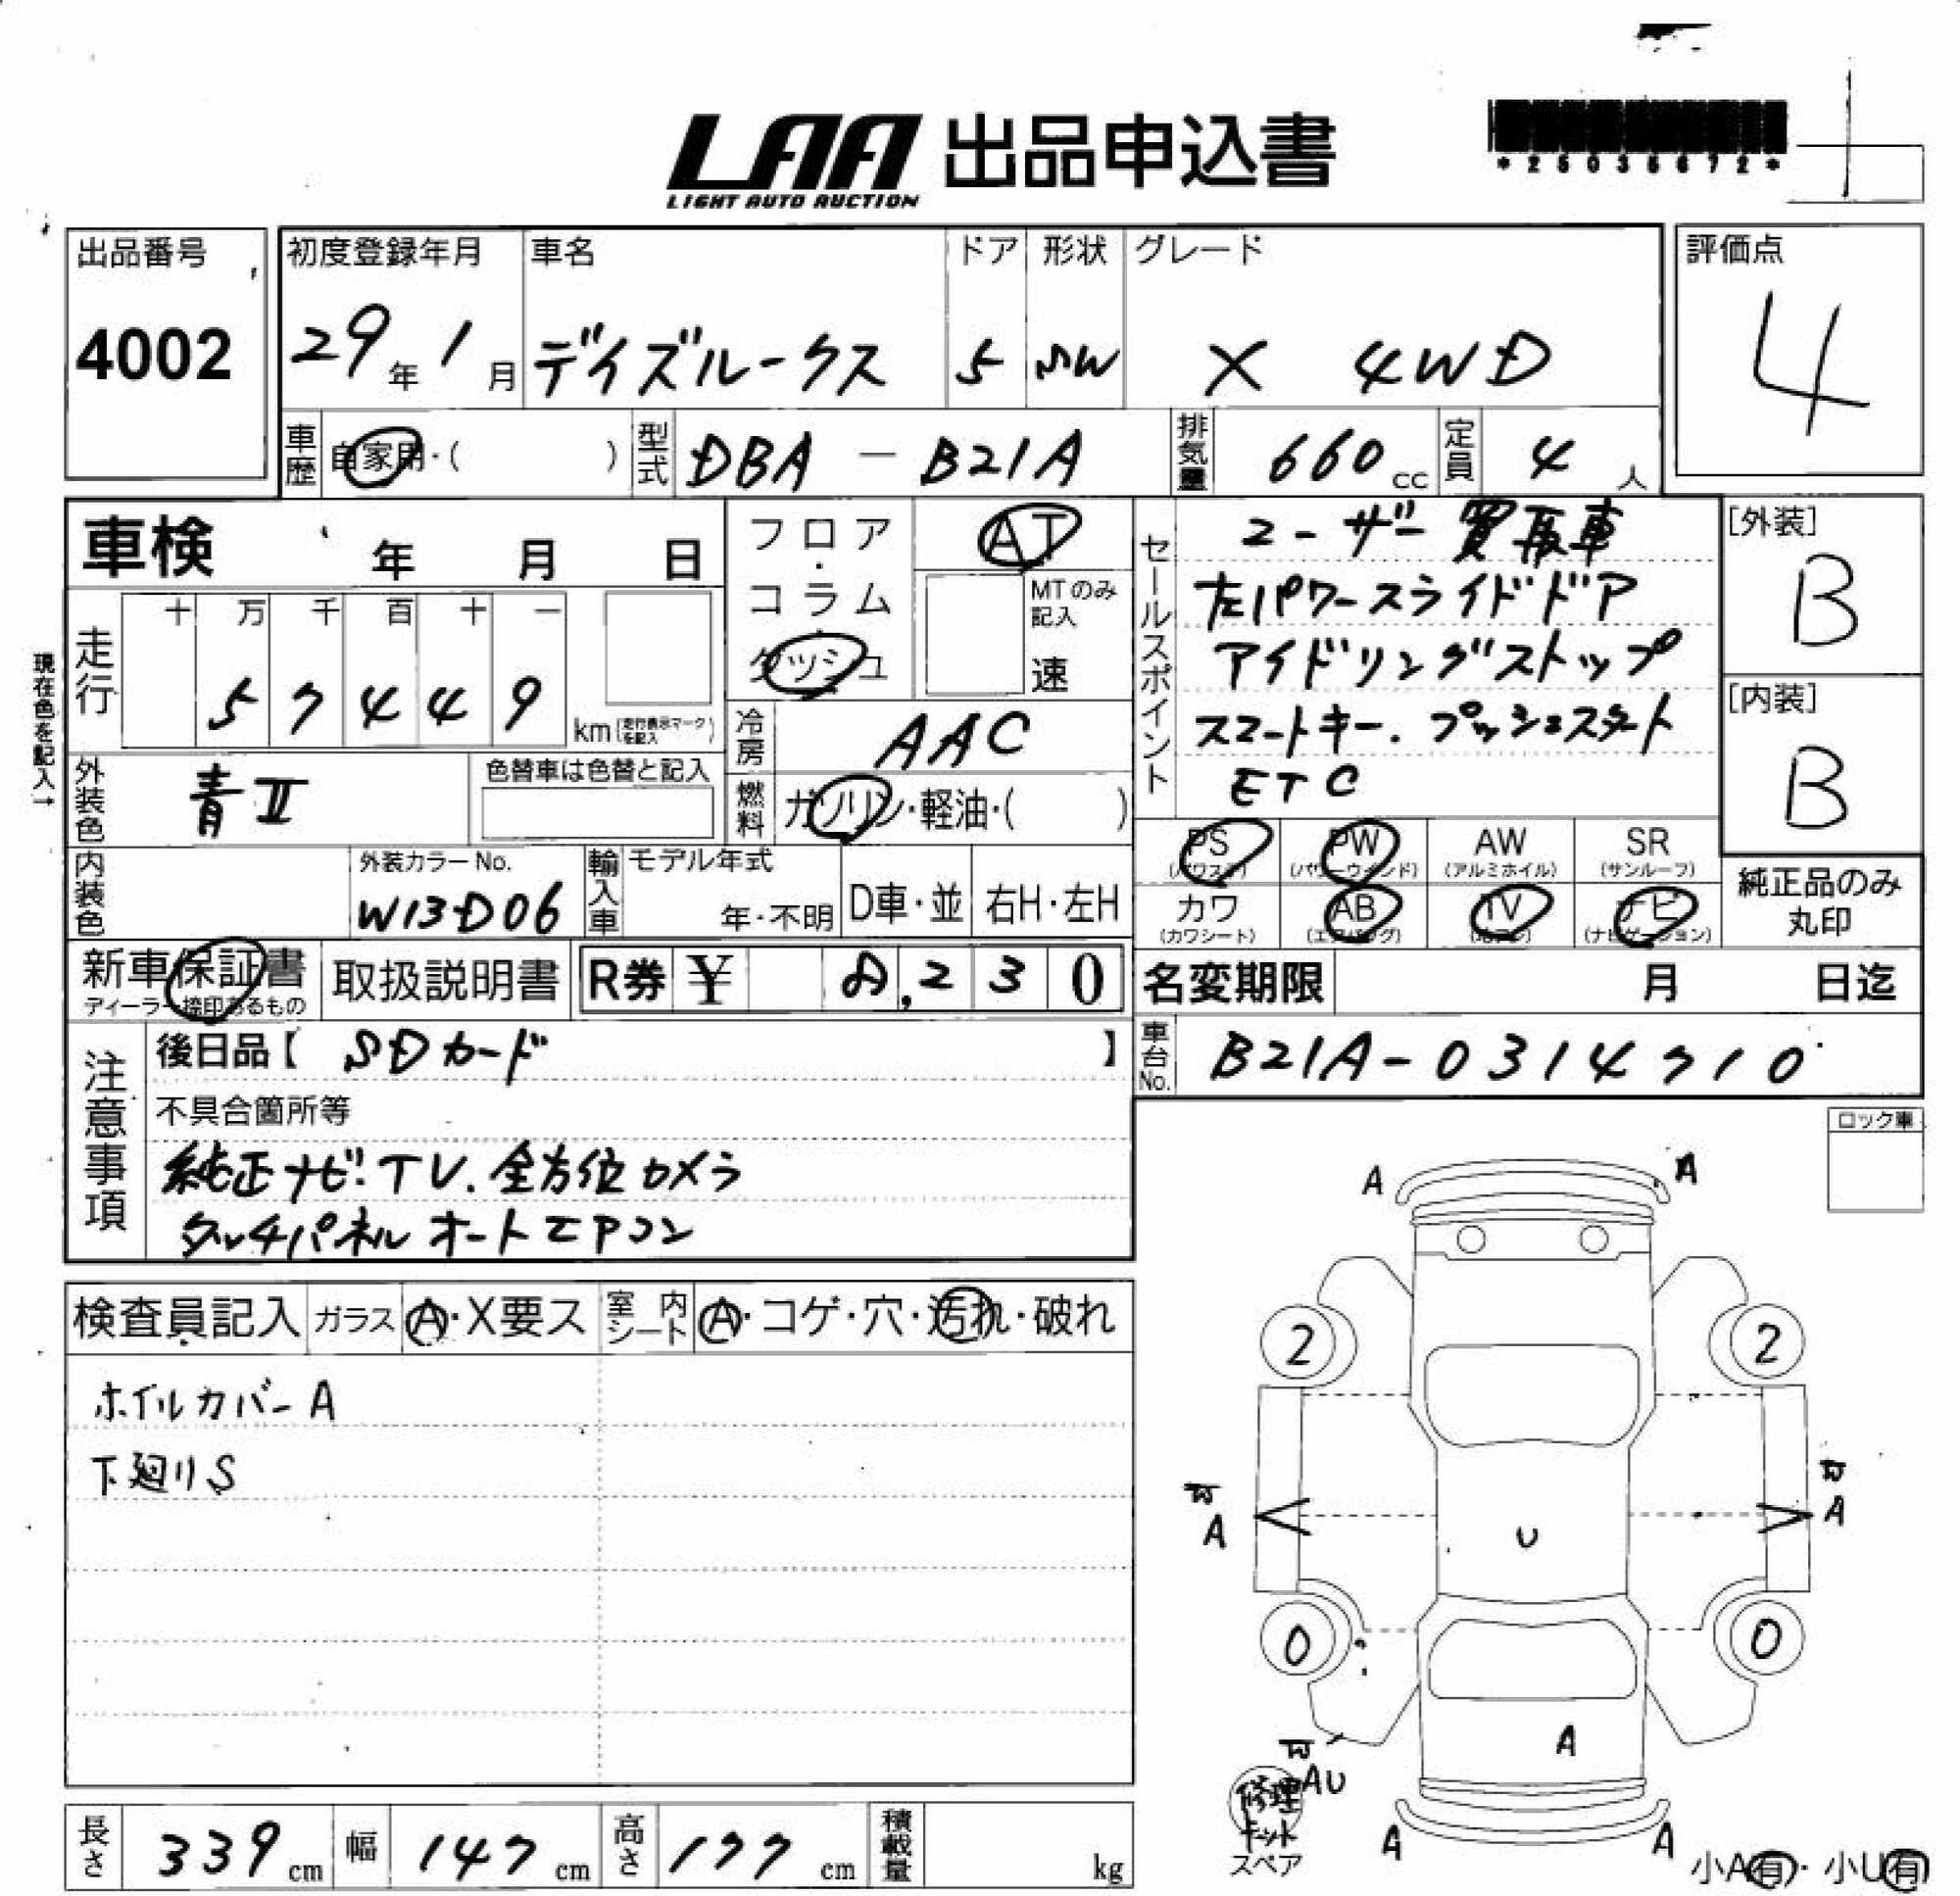 LAA 出品申込書
LIGHT AUTO AUCTION
*25035672*
出品番号
4002
初度登録年月
29年 1月
車名
デイズルークス
ドア
5
形状
SW
グレード
X 4WD
評価点
4
車歴 自家用・( )
型式 DBA-B21A
排気量 660 cc
定員 4 人
車検 年 月 日
現在色を記入→
走行
十 万 千 百 十 一
5 7 4 4 9 km (走行表示マークを記入)
フロア・コラム・ダッシュ
AT
MTのみ記入
速
冷房 AAC
燃料 ガソリン・軽油・( )
外装色 青II
色替車は色替と記入
内装色
外装カラーNo.
W13-D06
輸入車 モデル年式
年・不明
D車・並
右H・左H
セールスポイント
ユーザー買取車
左パワースライドドア
アイドリングストップ
スマートキー.プッシュスタート
ETC
[外装]
B
[内装]
B
PS (パワステ)
PW (パワーウインド)
AW (アルミホイル)
SR (サンルーフ)
カワ (カワシート)
AB (エアバッグ)
TV (テレビ)
ナビ (ナビゲーション)
純正品のみ丸印
新車保証書
ディーラー捺印あるもの
取扱説明書
R券 ¥ 8,230
名変期限 月 日迄
車台No. B21A-0314710
注意事項
後日品【 SDカード 】
不具合箇所等
純正ナビ.TV.全方位カメラ
タッチパネルオートエアコン
ロック車
検査員記入
ガラス A・X要ス
室内シート A・コゲ・穴・汚れ・破れ
ホイルカバーA
下廻りS
A A
2 2
A A
U
0 0
A
AU
A A
修理キット
スペア
小A有・小U有
長さ 339 cm
幅 147 cm
高さ 177 cm
積載量 kg